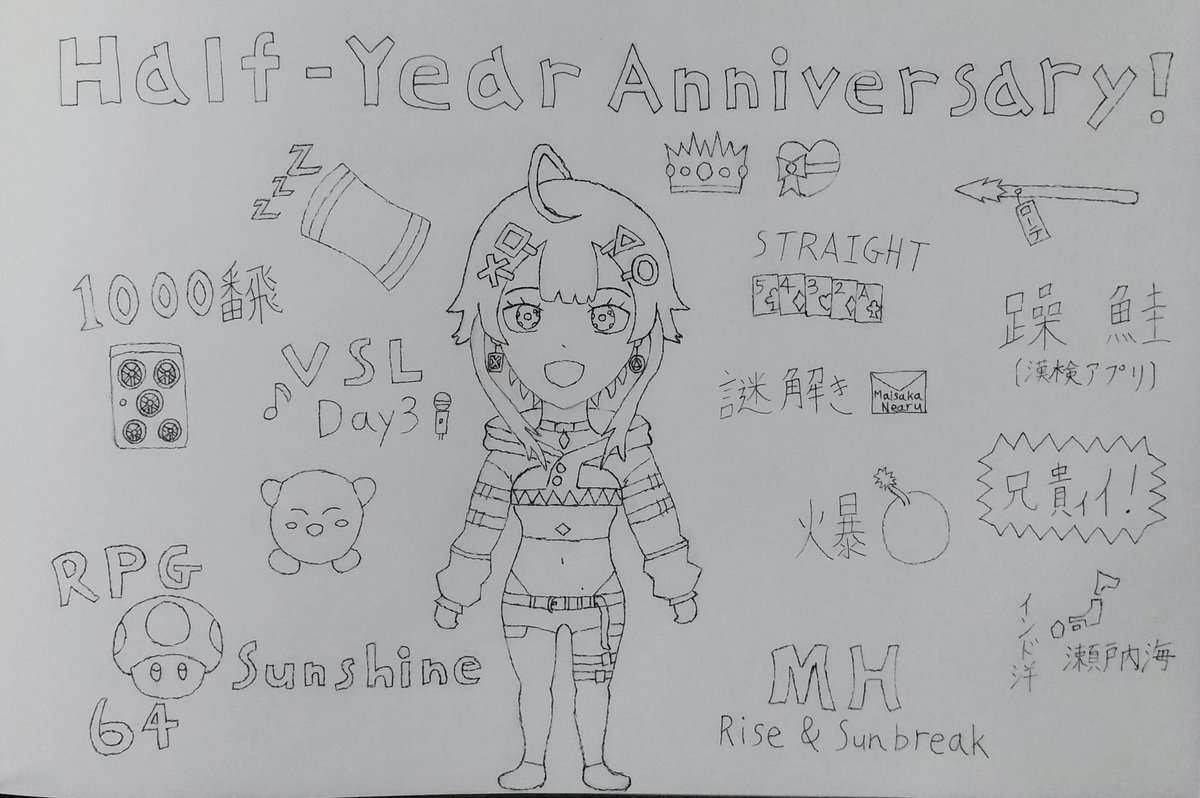 Half-Year Anniversary!
Z
Z
Z
1000番飛
VSL
Day3
RPG
64
Sunshine
STRAIGHT
5 4 3 2 A
謎解き
Maisaka
Nearu
火暴
MH
Rise & Sunbreak
ローテ
躁 鮭
(漢検アプリ)
兄貴ィイ!
インド洋
瀬戸内海